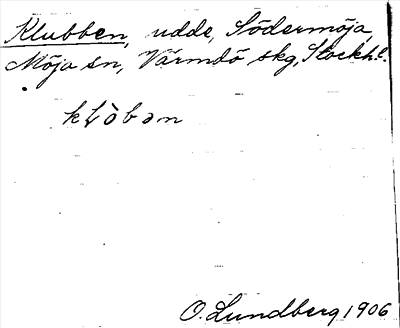 Klubben, udde, Södermöja,
Möja sn, Värmdö skg, Stockh. l.
kłòbən
O. Lundberg 1906